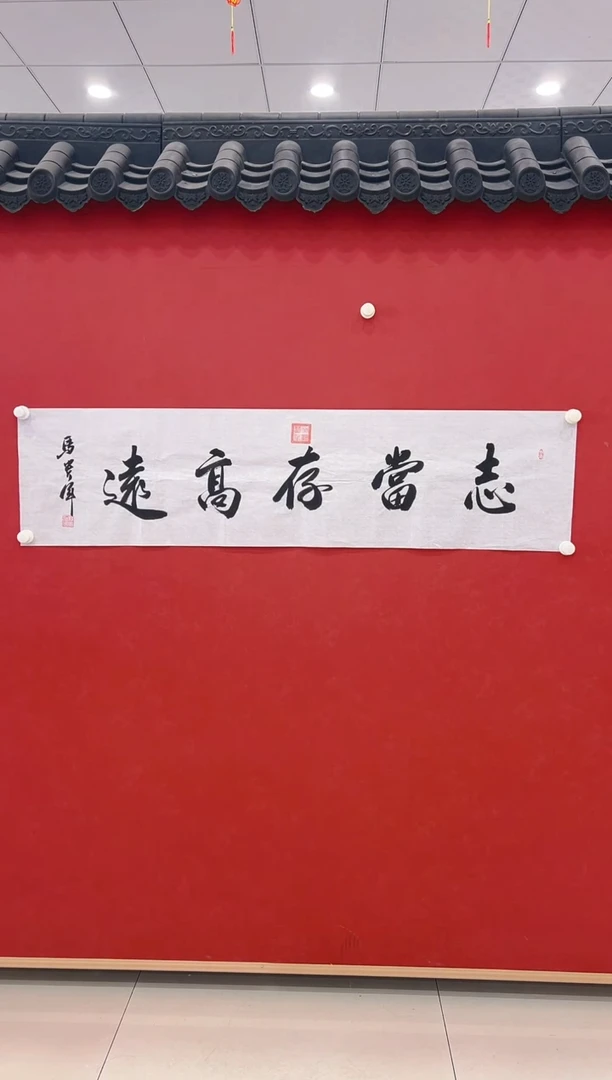 志當存高遠